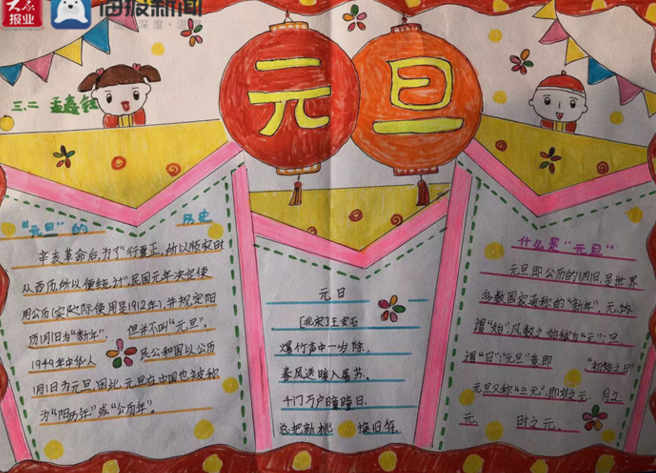 大众报业
海报新闻
深度·温度
元旦
三.二
"元旦"的 历史
辛亥革命后,为了"行夏正,所以顺农时
从西历,所以便统计",民国元年决定使
用公历(实际使用是1912年),并规定阳
历1月1日为"新年",但并不叫"元旦"。
1949年中华人民共和国以公历
1月1日为元旦,因此元旦在中国也被称
为"阳历年"或"公历年"。
元日
[北宋]王安石
爆竹声中一岁除,
春风送暖入屠苏。
千门万户曈曈日,
总把新桃换旧符。
什么是"元旦"
元旦即公历的1月1日,是世界
多数国家通称的"新年"。元,
谓"始",凡数之始称为"元";旦,
谓"日";"元旦"意即"初始之日"
元旦又称"三元",即岁之元、月之
元、时之元。